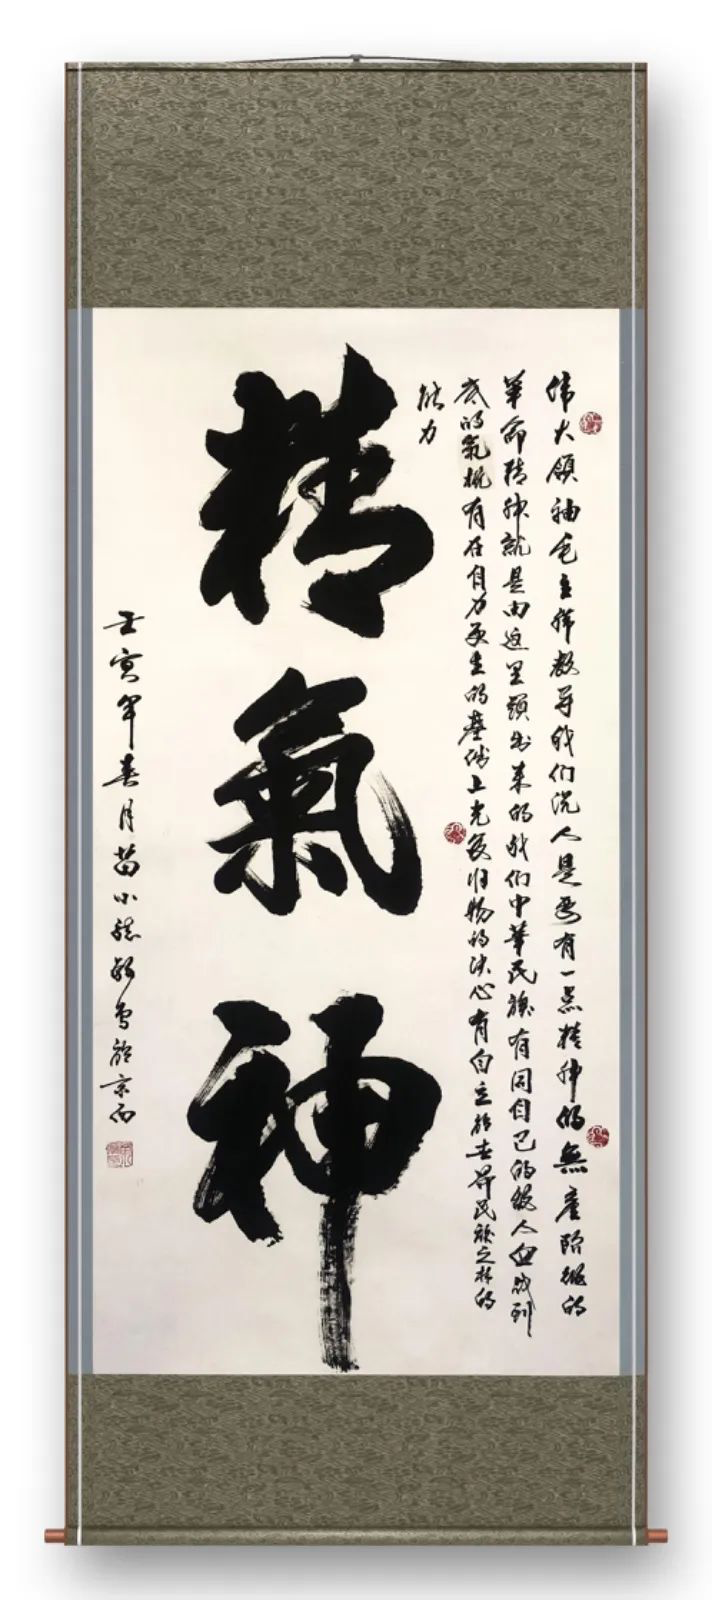 伟大领袖毛主席教导我们说人是要有一点精神的無產阶级的
革命精神就是由这里頭出来的我们中華民族有同自己的敌人血战到
底的氣概有在自力更生的基础上光复旧物的决心有自立於世界民族之林的
能力
精氣神
壬寅年春月苗小懿敬書於京西